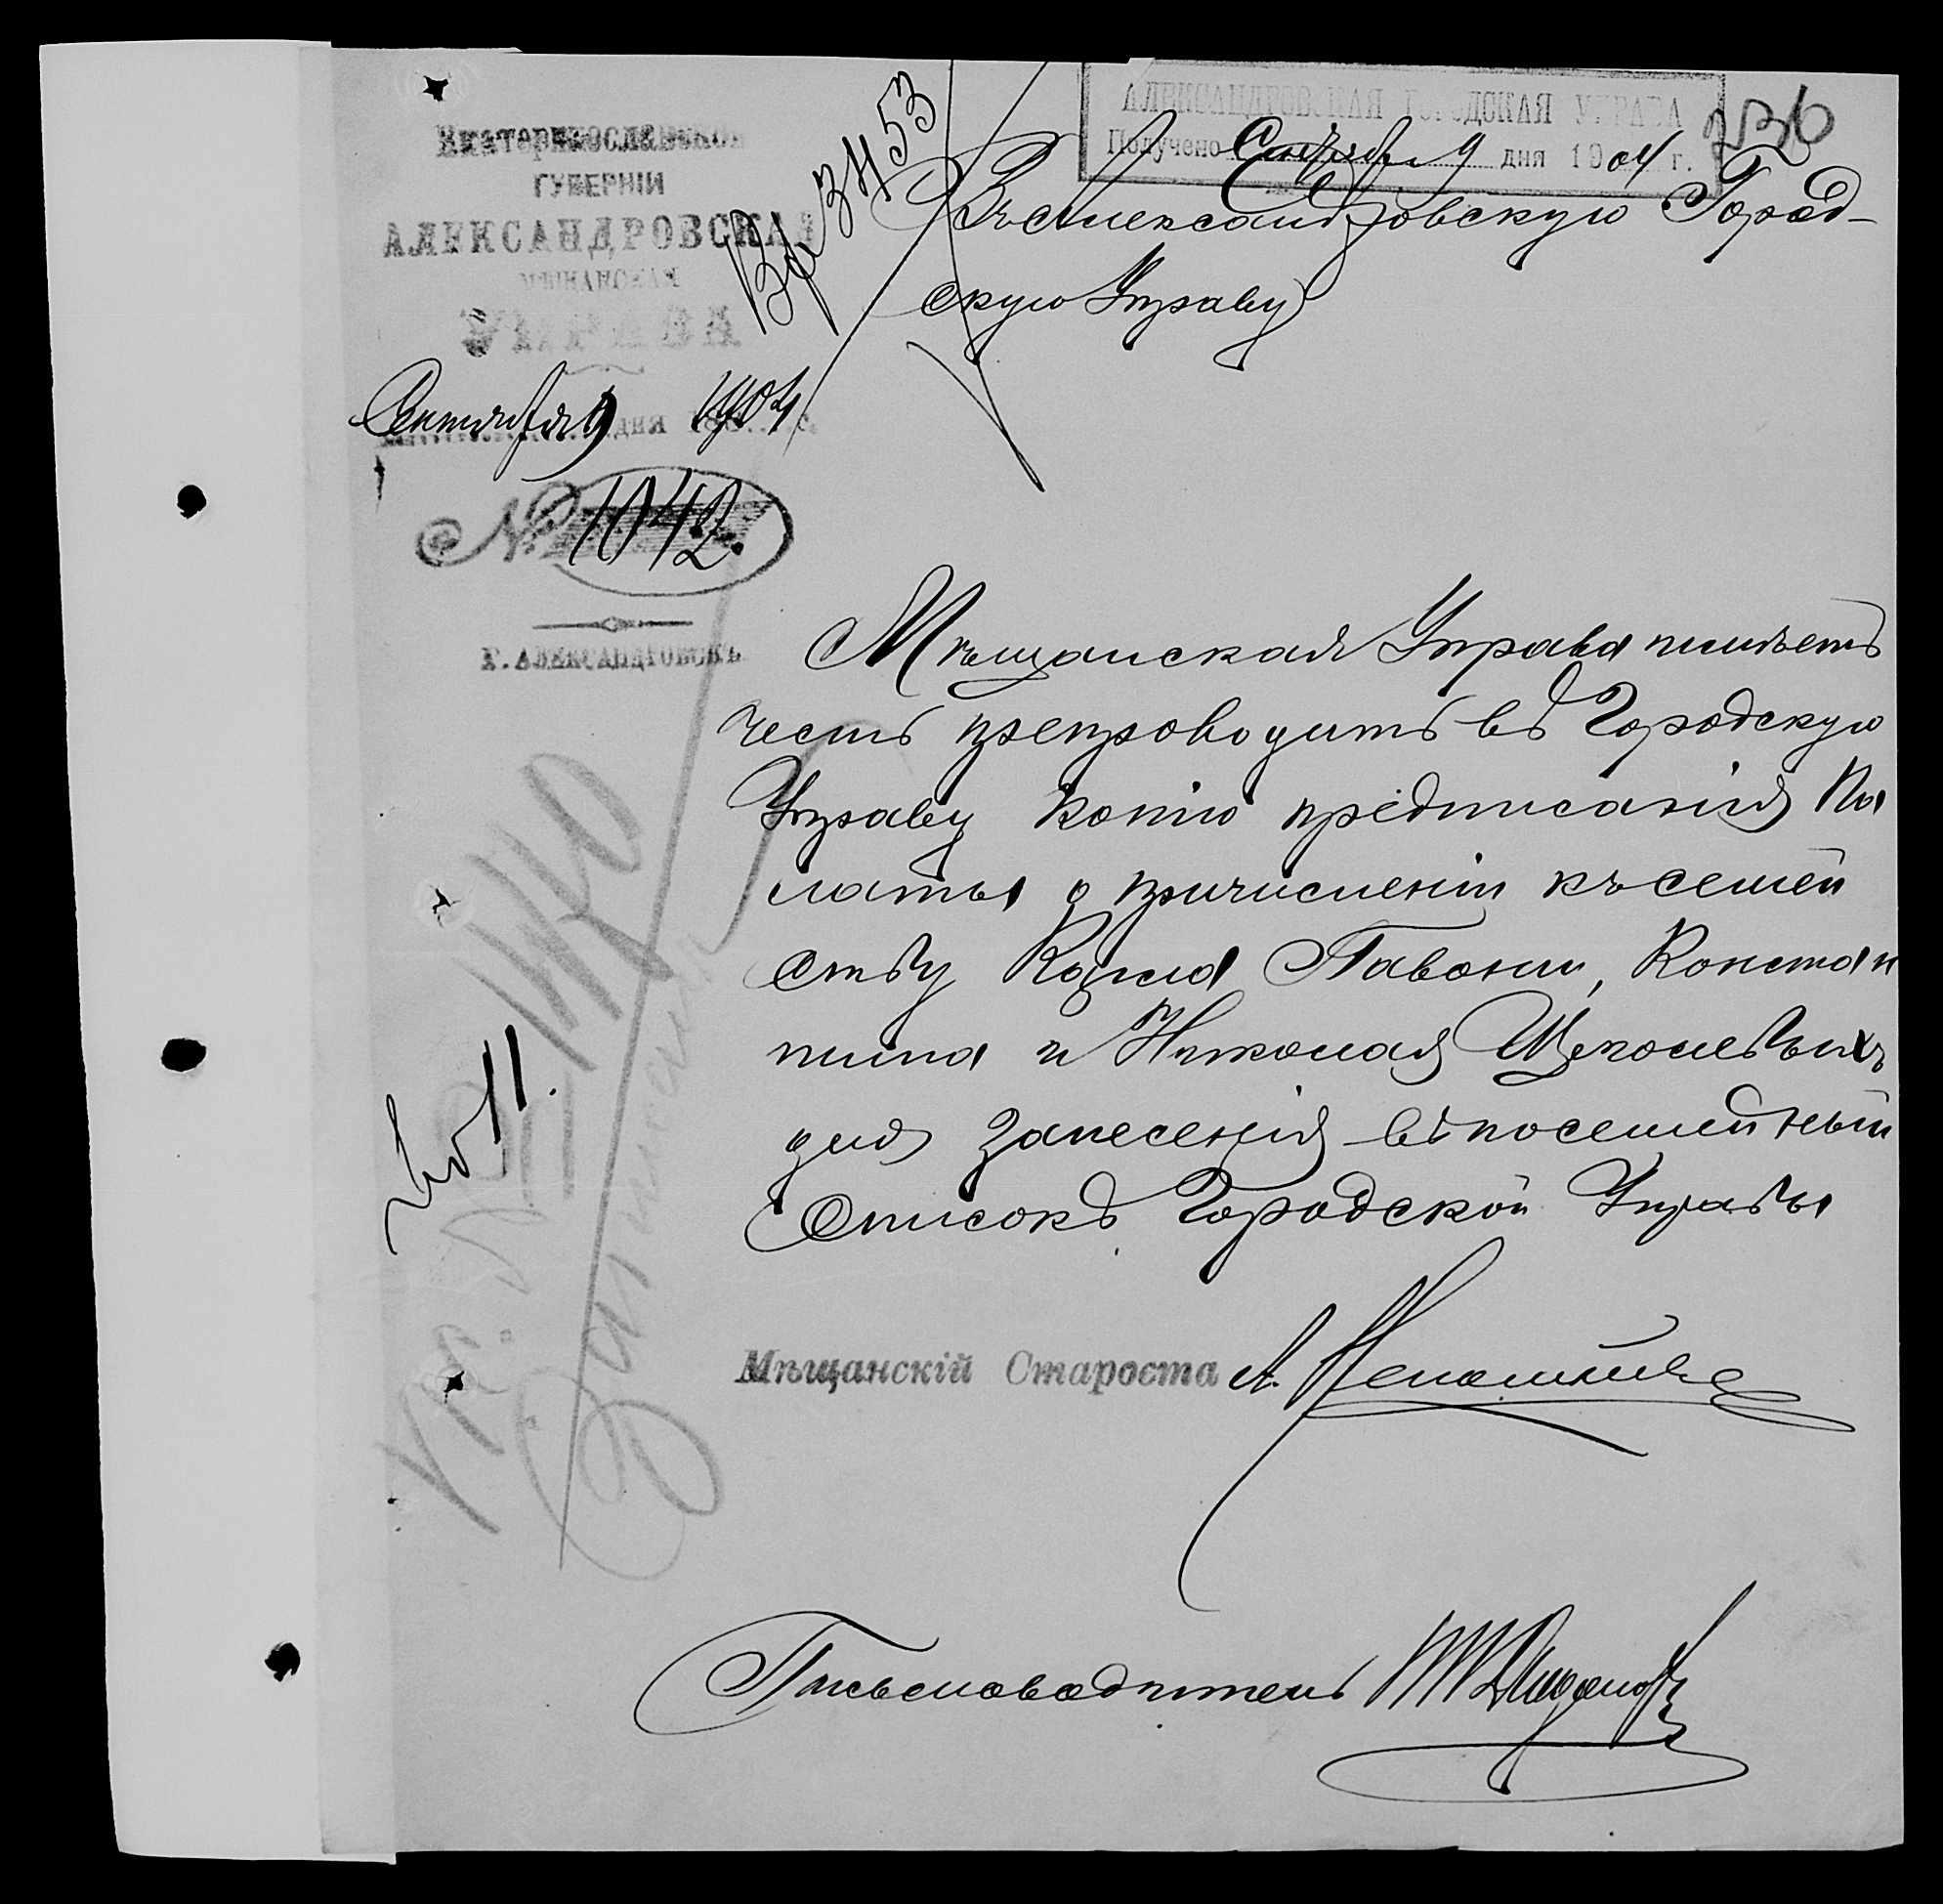 Екатеринославской
ГУБЕРНІИ
АЛЕКСАНДРОВСКАЯ
МѢЩАНСКАЯ
УПРАВА
Сентября 9 дня 1904 г.
№ 1042.
Г. АЛЕКСАНДРОВСКЪ
Вх 3453
АЛЕКСАНДРОВСКАЯ ГОРОДСКАЯ УПРАВА
Получено Сентября 9 дня 1904 г.
236
Въ Александровскую Город-
скую Управу
Мѣщанская Управа имѣетъ
честь препроводить въ Городскую
Управу копію предписанія Па
латы о причисленіи къ семей
ству Карла Павони, Констан
тина и Николая Щеголевыхъ
для занесенія въ посемейный
списокъ Городской Управы
Мѣщанскій Староста А.
Письмоводитель